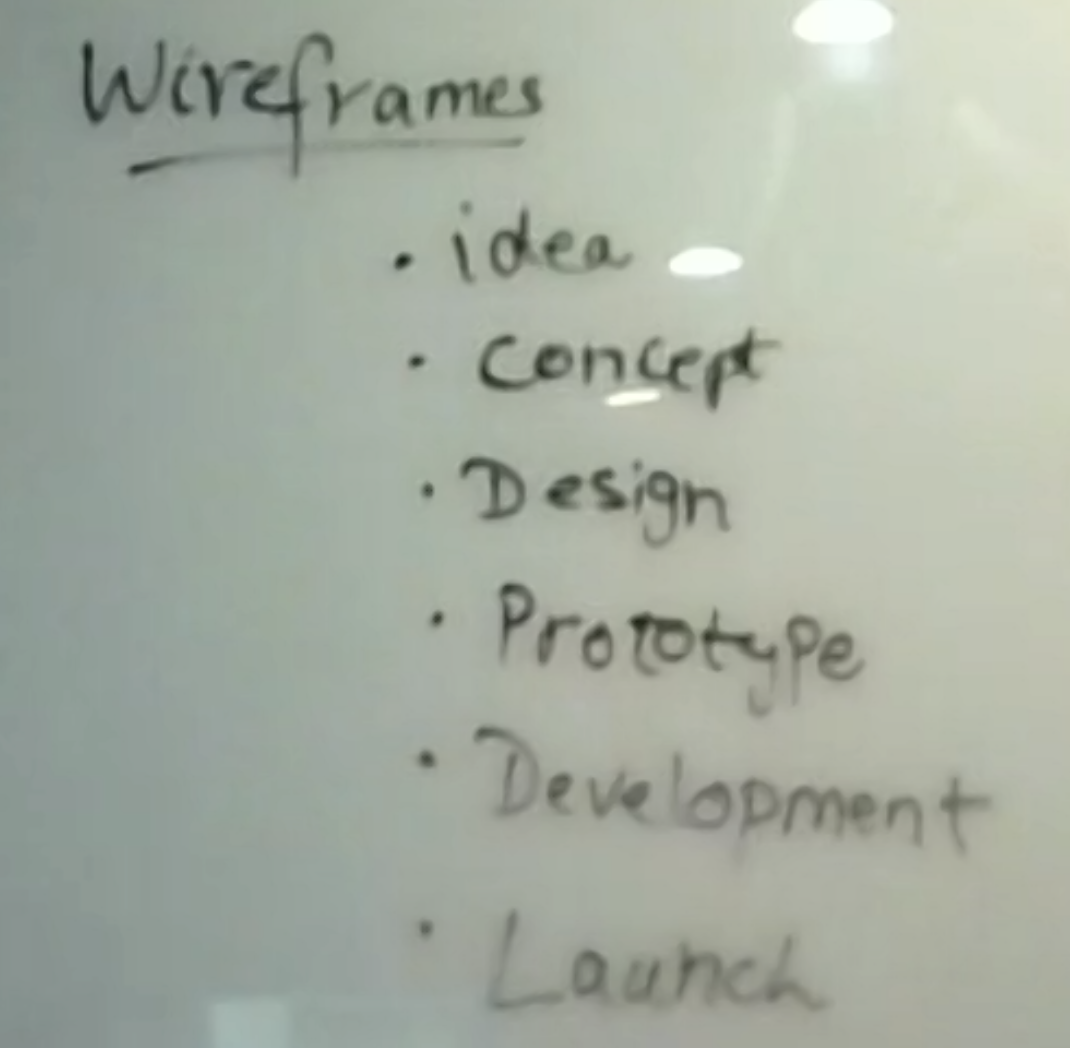 Wireframes
· idea
· Concept
· Design
· Prototype
· Development
· Launch